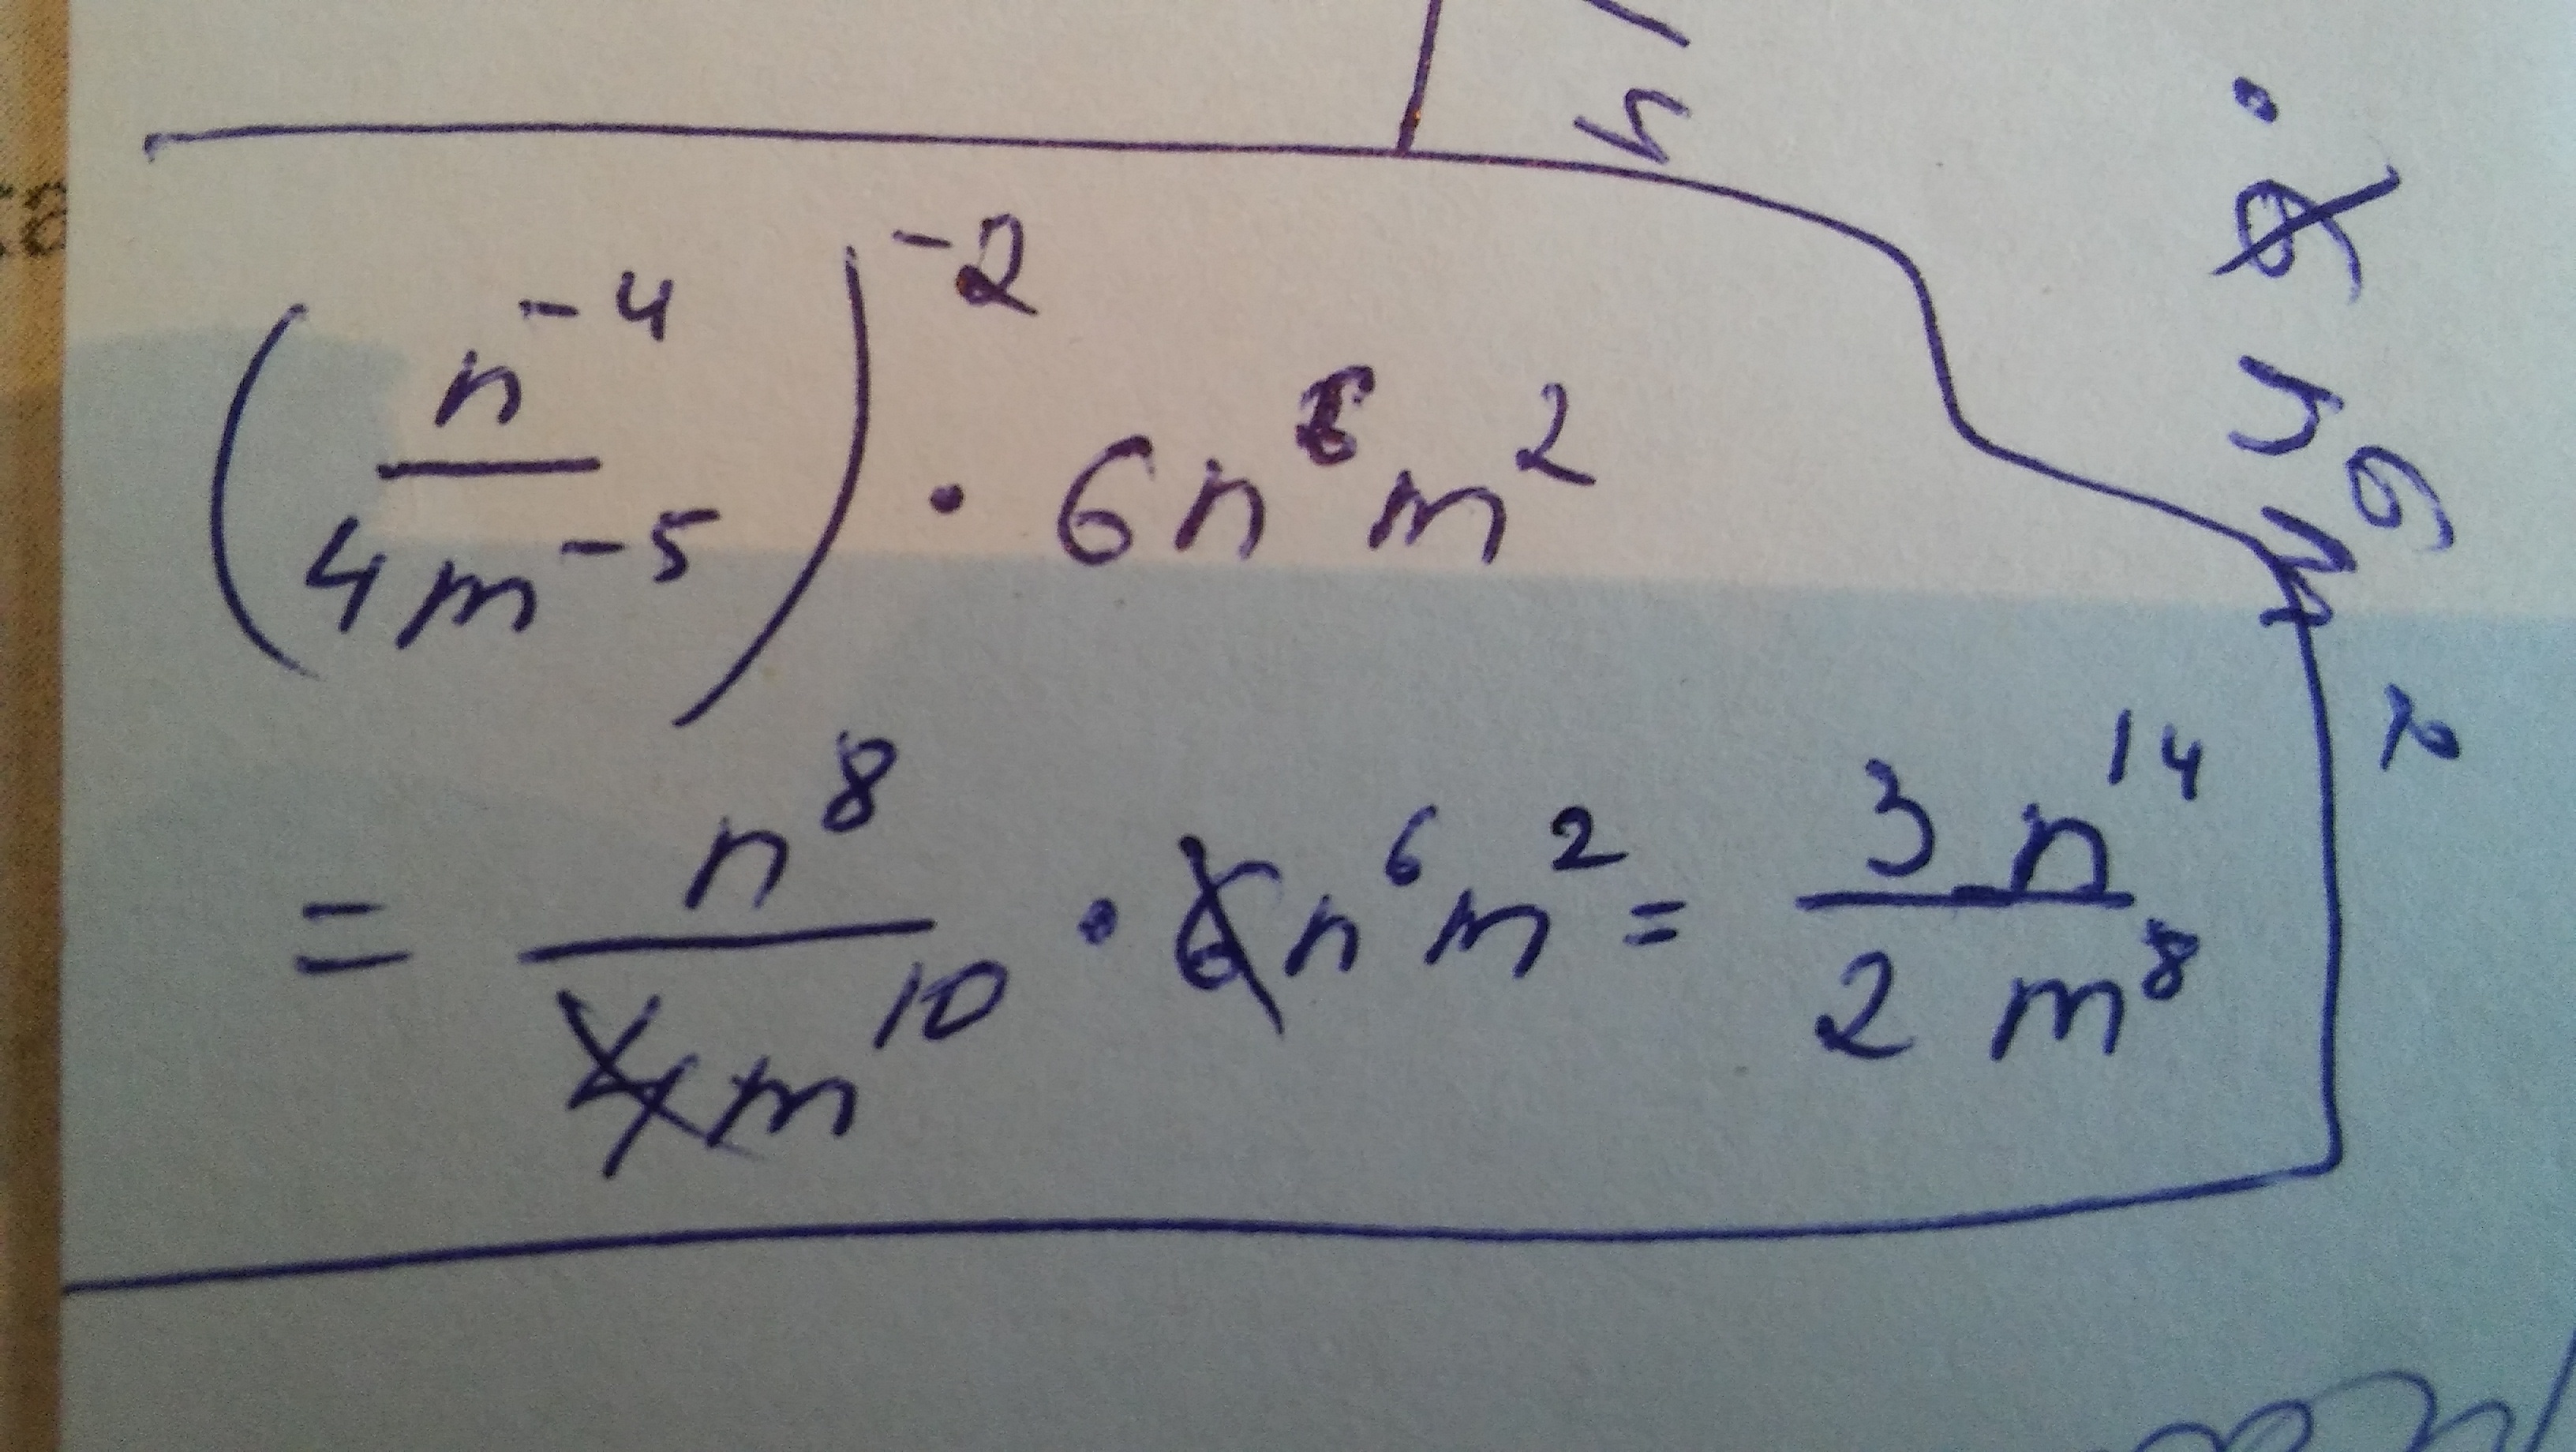 (n^-4 / 4m^-5)^-2 · 6n^6 m^2
= n^8 / 4m^10 · 6n^6 m^2 = 3n^14 / 2m^8